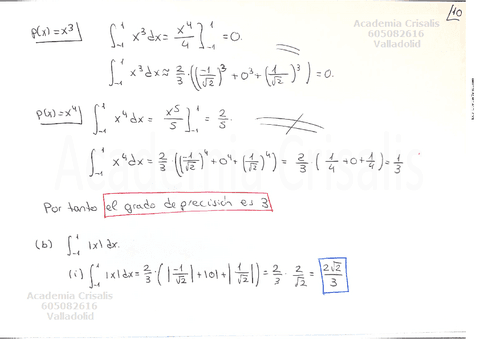 Academia Crisalis
605082616
Valladolid
10
p(x)=x³ ∫₋₁¹ x³dx = x⁴/4 ]₋₁¹ = 0.
∫₋₁¹ x³dx ≈ 2/3 · ((-1/√2)³ + 0³ + (1/√2)³) = 0.
p(x)=x⁴ ∫₋₁¹ x⁴dx = x⁵/5 ]₋₁¹ = 2/5.
∫₋₁¹ x⁴dx = 2/3 · ((-1/√2)⁴ + 0⁴ + (1/√2)⁴) = 2/3 · (1/4 + 0 + 1/4) = 1/3
Por tanto el grado de precisión es 3
(b) ∫₋₁¹ |x| dx.
(i) ∫₋₁¹ |x| dx = 2/3 · (|-1/√2| + |0| + |1/√2|) = 2/3 · 2/√2 = 2√2/3
Academia Crisalis
605082616
Valladolid